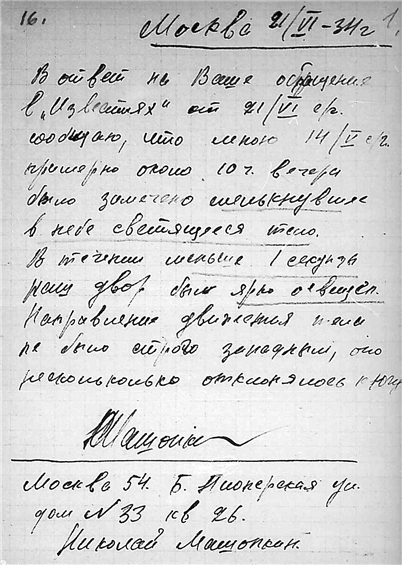 16.
Москва 21/VI-34г 1.
В ответ на Ваше обращение
в „Известиях" от 21/VI с/г.
сообщаю, что мною 14/V с/г.
примерно около 10 г. вечера
было замечено мелькнувшее
в небе светящееся тело.
В течении меньше 1 секунды
наш двор был ярко освещен.
Направление движения тела
не было строго западным, оно
несколько отклонялось к Югу
Москва 54. Б. Пионерская ул.
дом N 33 кв 26.
Николай Машонкин.